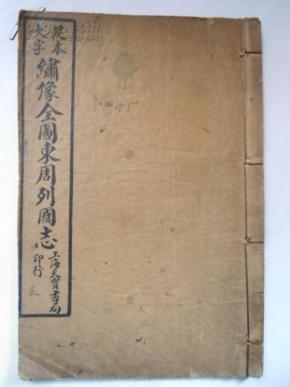 大字
足本
繡像全圖東周列國志
上海天寶書局
印行